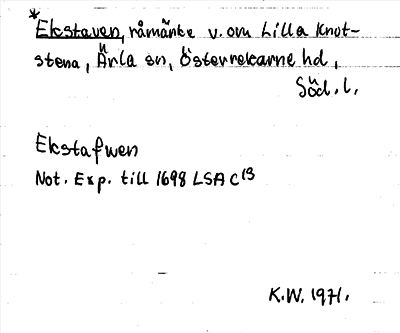 *Ekstaven, råmärke v. om Lilla Knot-
stena, Ärla sn, Österrekarne hd,
Söd. l.
Ekstafwen
Not. Exp. till 1698 LSA C13
K.W. 1971.